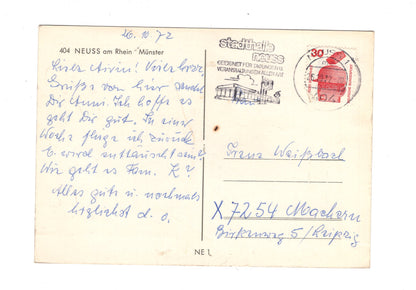 26.10.72
404 NEUSS am Rhein Münster
Liebe Viele
Grüße von hier sendet
Dir Anni. Ich hoffe es
geht Dir gut. In einer
Woche fliege ich zurück
E. wird enttäuscht sein?
Wie geht es Fam. K?
Alles gute u. nochmals
herzlichst d. o.
stadthalle
neuss
GEEIGNET FÜR TAGUNGEN U.
VERANSTALTUNGEN ALLER ART
30
Franz Weißbach
X 7254 Machern
Birkenweg 5 / Leipzig
NE 1